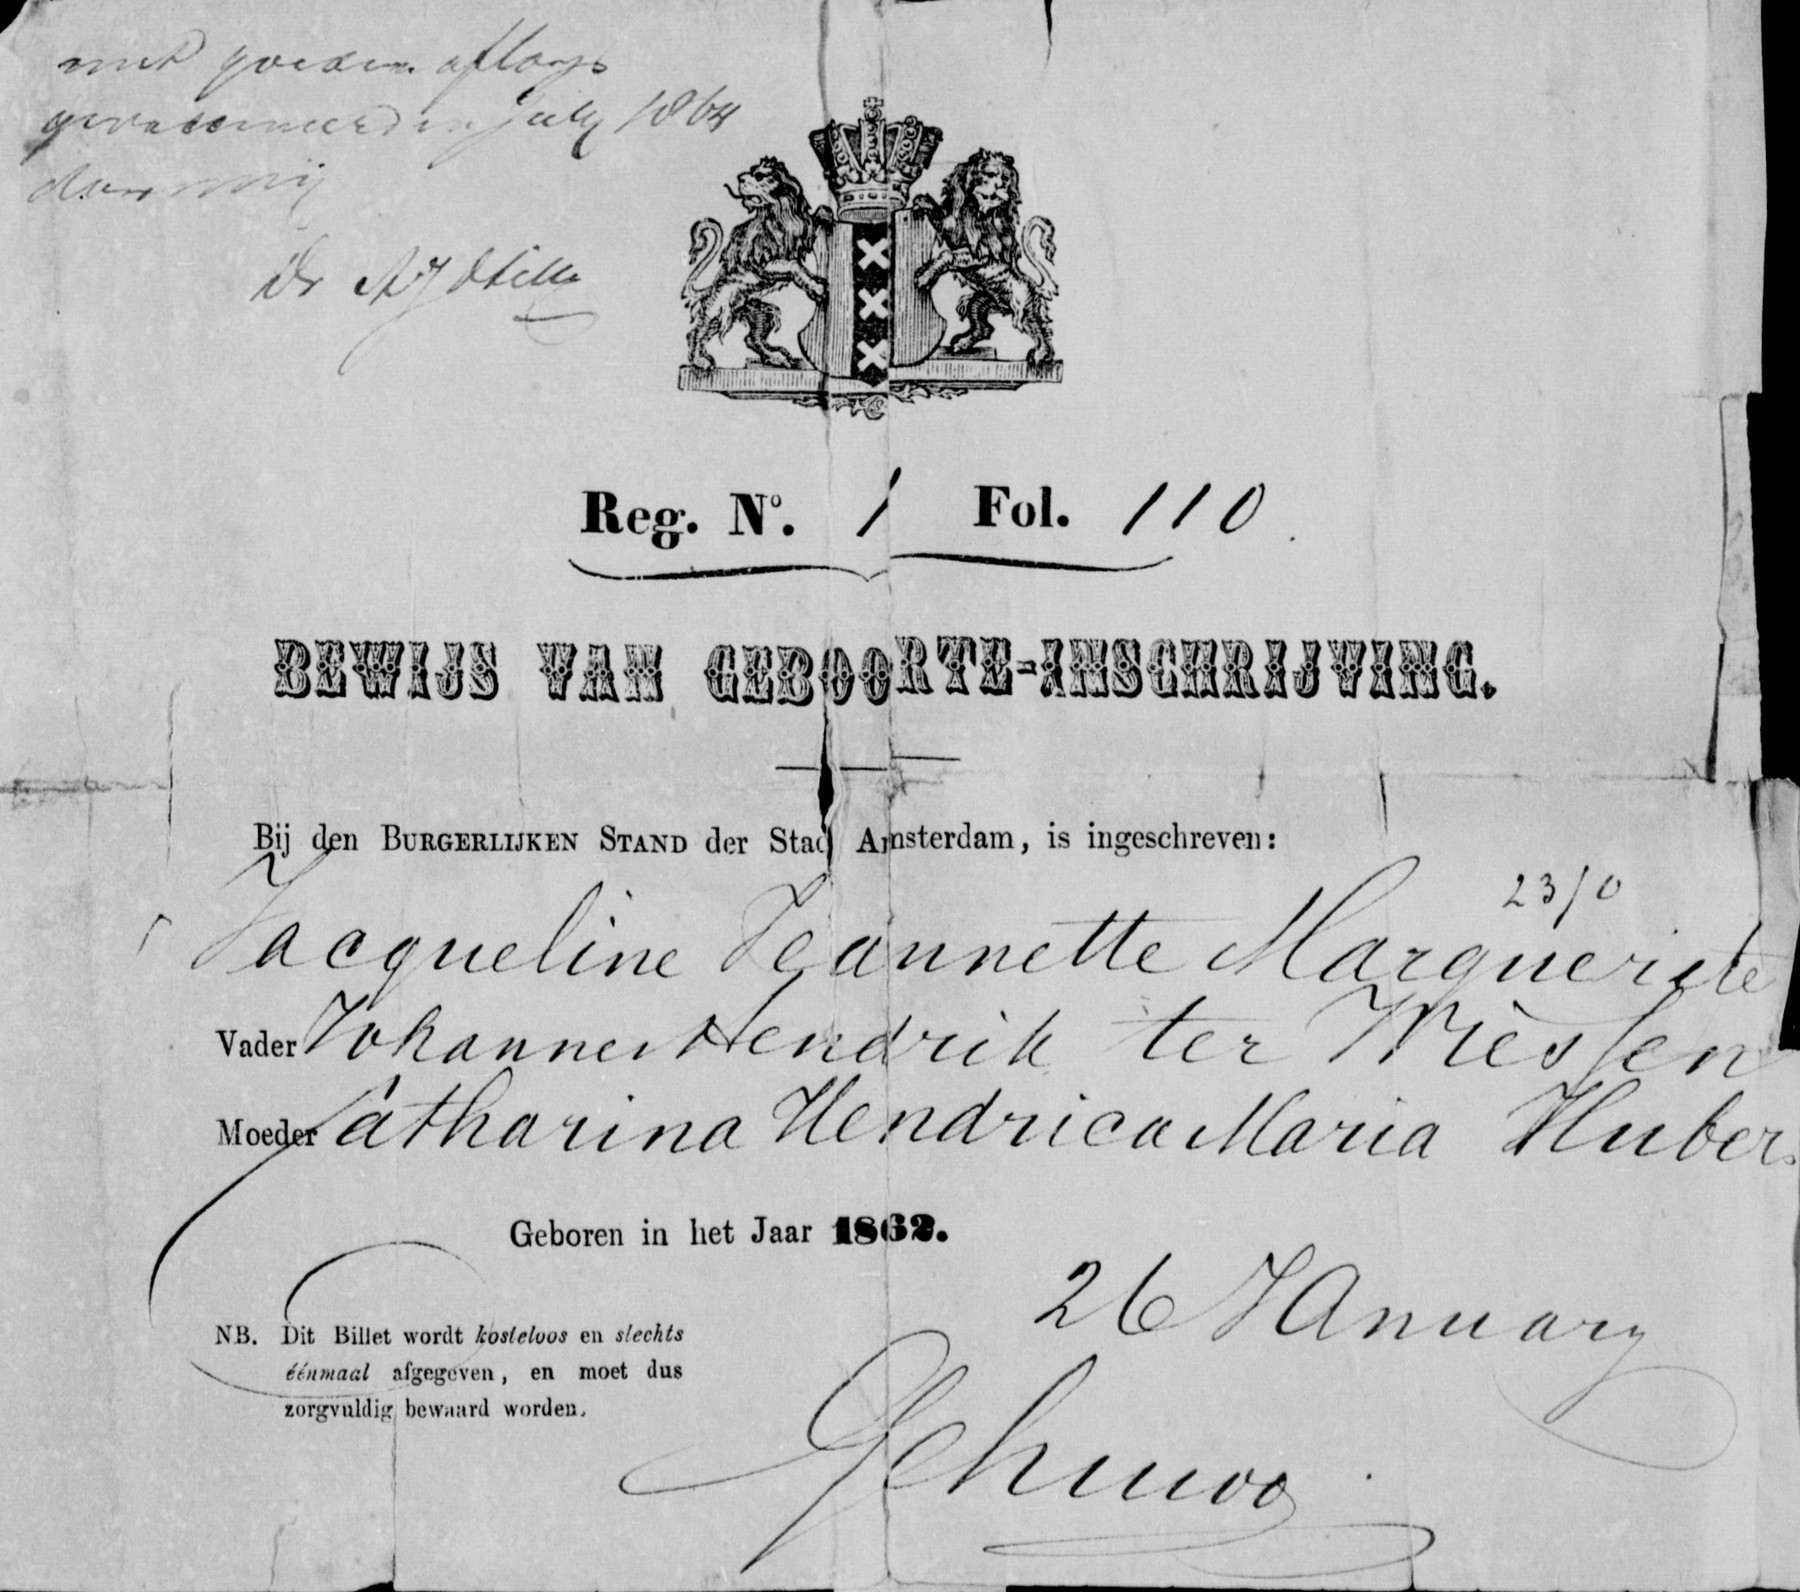 met goeden afloop
gevaccineerd in July 1864
door mij
Dr
Reg. No. 1 Fol. 110
BEWIJS VAN GEBOORTE-INSCHRIJVING.
Bij den BURGERLIJKEN STAND der Stad Amsterdam, is ingeschreven:
23/0
Jacqueline Jeannette Marguerite
Vader Johannes Hendrik ter Meulen
Moeder Catharina Hendrica Maria Huber
Geboren in het Jaar 1862.
26 January
NB. Dit Billet wordt kosteloos en slechts
éénmaal afgegeven, en moet dus
zorgvuldig bewaard worden.